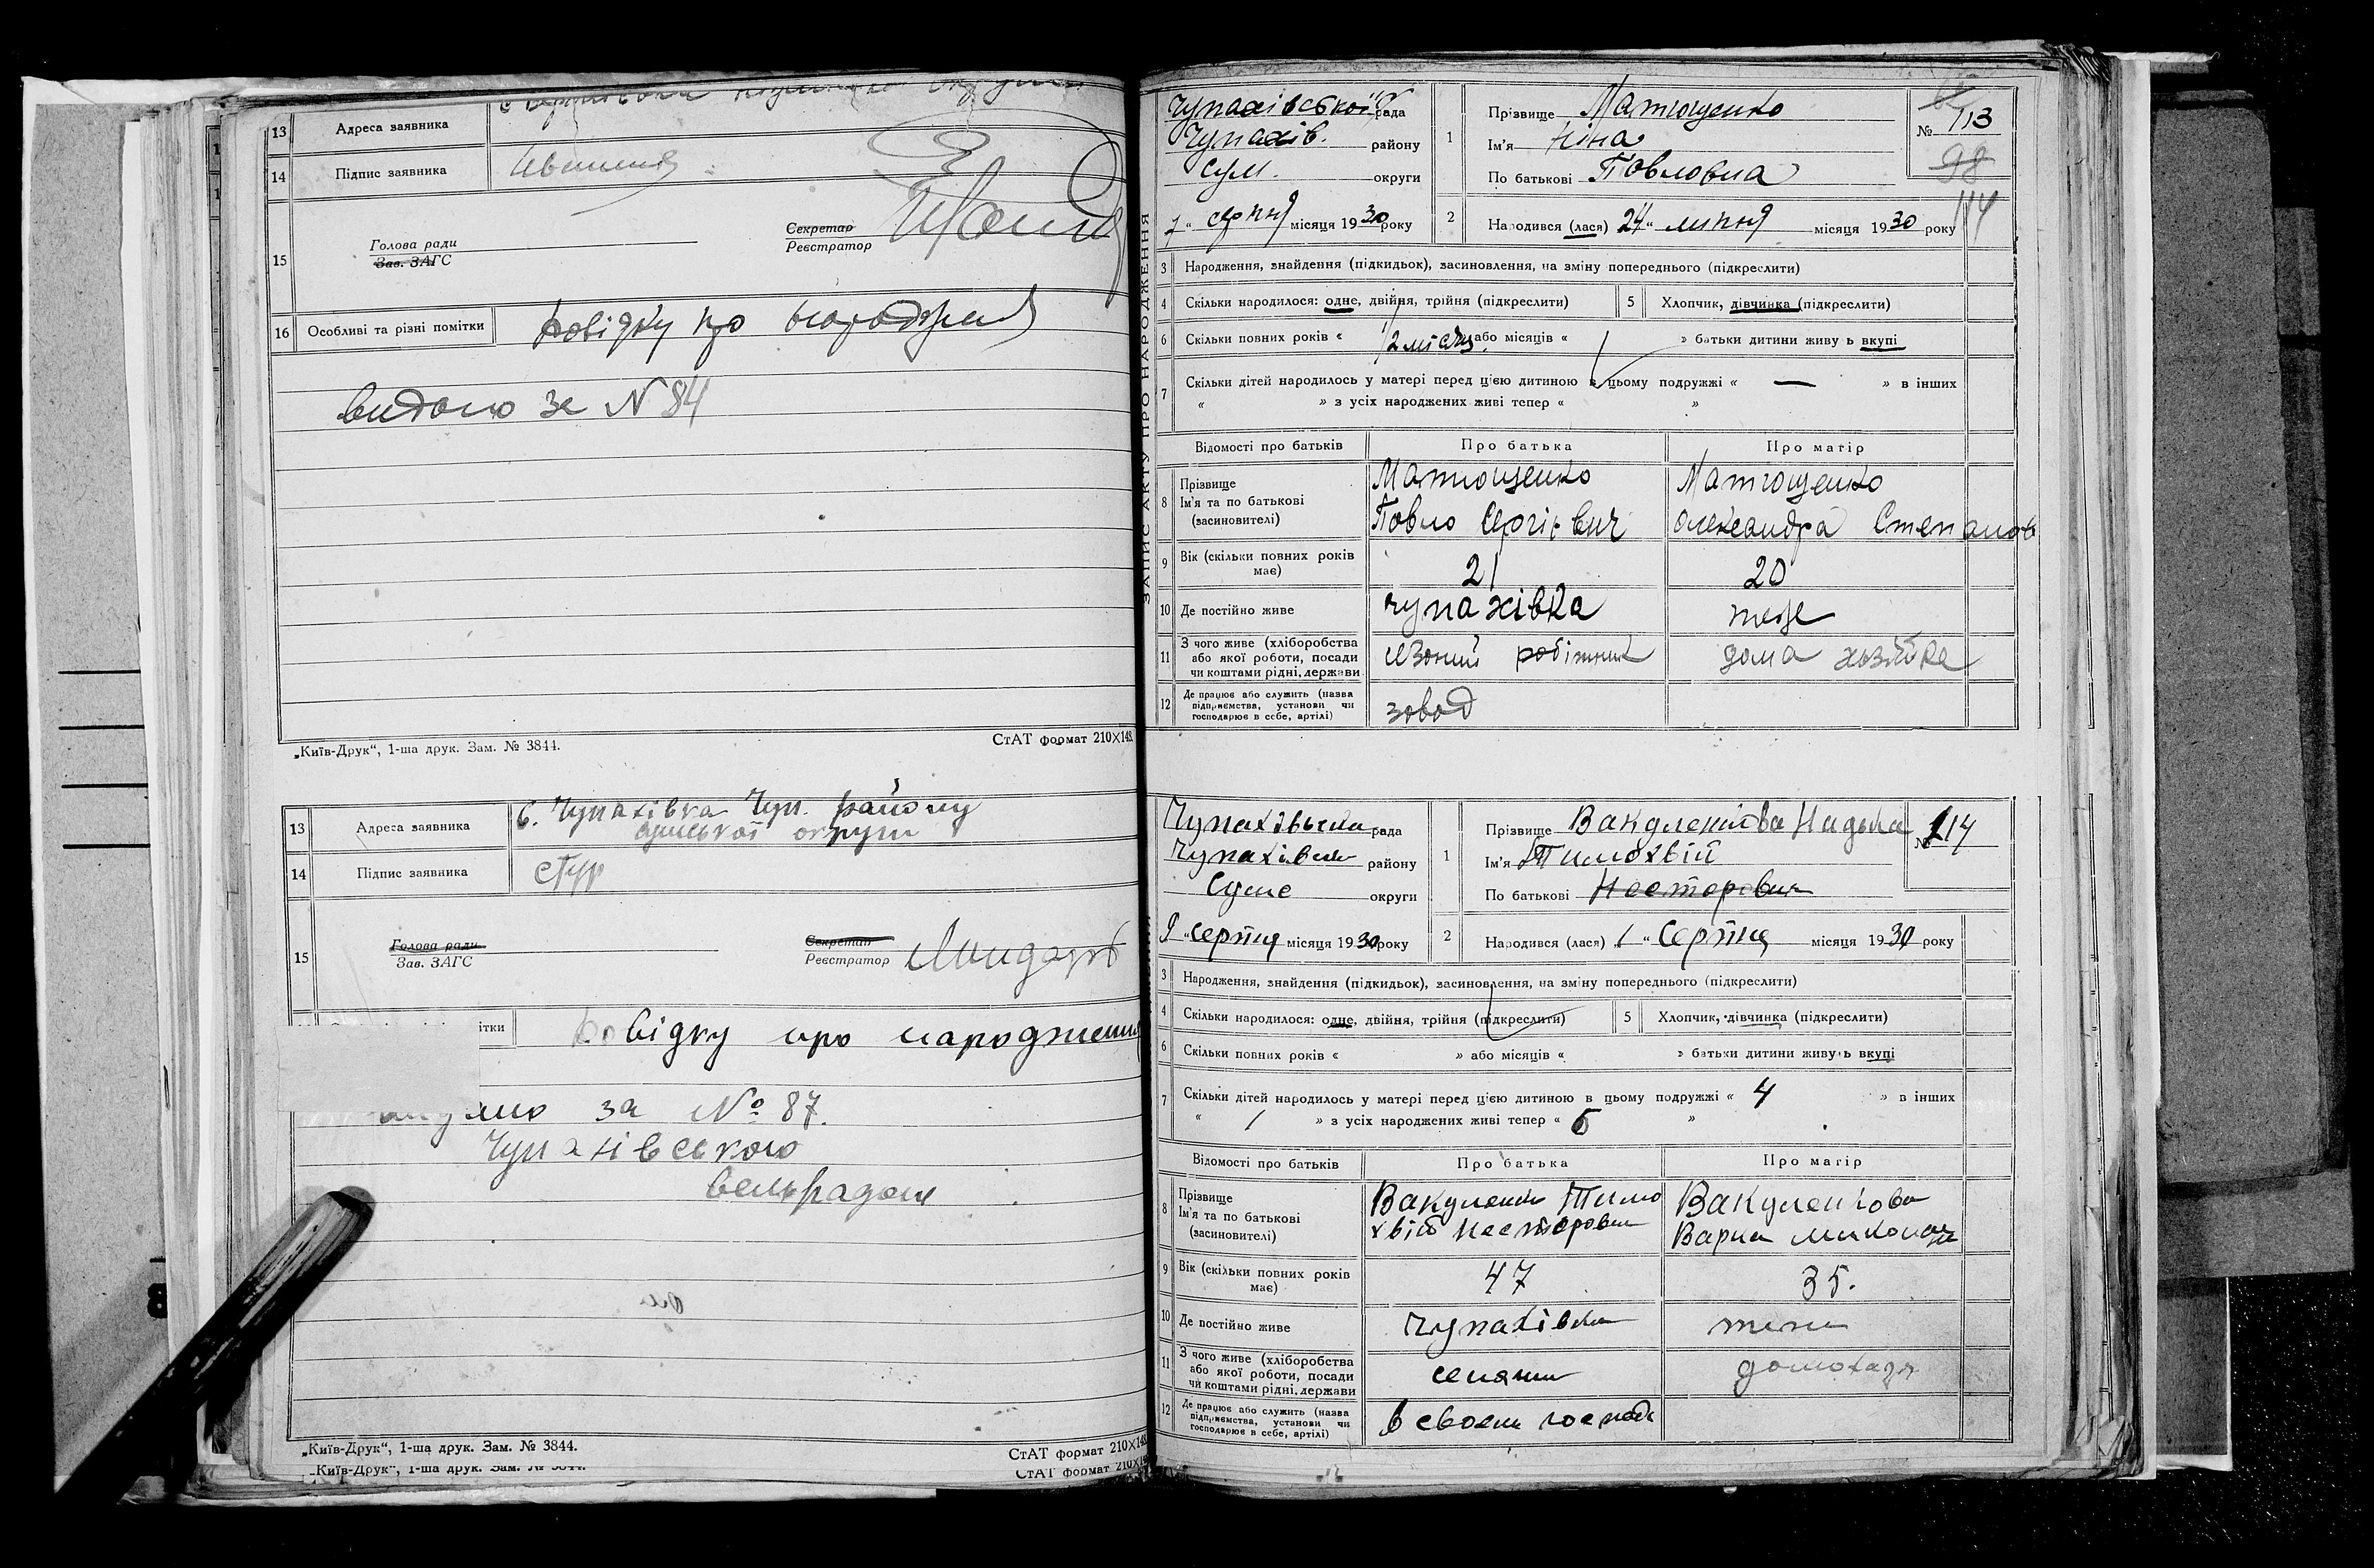 13 Адреса заявника
14 Підпис заявника
15 Голова ради
Зав. ЗАГС
Секретар
Реєстратор
16 Особливі та різні помітки довідку про народження
видано за N 84
„Київ-Друк“, 1-ша друк. Зам. № 3844. СтАТ формат 210×148.
13 Адреса заявника С. Чупахівка Чуп. району
сумської округи
14 Підпис заявника
15 Голова ради
Зав. ЗАГС
Секретар
Реєстратор
ітки довідку про народження
за № 87.
Чупахівською
сельрадою
„Київ-Друк“, 1-ша друк. Зам. № 3844. СтАТ формат 210×148
„Київ-Друк“, 1-ша друк. Зам. № 3844. СтАТ формат 210×148
ЗАПИС АКТУ ПРО НАРОДЖЕННЯ
Чупахівської рада
Чупахів. району
Сум. округи
7 „ серпня місяця 1930 року
1 Прізвище Матющенко
Ім'я Ніна
По батькові Павловна
№ 113
98
114
2 Народився (лася) 24 “ липня місяця 1930 року
3 Народження, знайдення (підкидьок), засиновлення, на зміну попереднього (підкреслити)
4 Скільки народилося: одне, двійня, трійня (підкреслити) 5 Хлопчик, дівчинка (підкреслити)
6 Скільки повних років « або місяців « » батьки дитини живуть вкупі
7 Скільки дітей народилось у матері перед цією дитиною в цьому подружжі « — » в інших
« » з усіх народжених живі тепер « »
Відомості про батьків Про батька Про матір
8 Прізвище Ім'я та по батькові (засиновителі) Матющенко Матющенко
Павло Сергієвич Олександра Степанов
9 Вік (скільки повних років має) 21 20
10 Де постійно живе Чупахівка теже
11 З чого живе (хліборобства або якої роботи, посади чи коштами рідні, держави робітник дома хозяйка
12 Де працює або служить (назва підприємства, установи чи господарює в себе, артілі) завод
Чупахівська рада
Чупахівськ району
Суме округи
9 „ серпня місяця 1930 року
1 Прізвище Вакуленкова Надька
Ім'я Тимохвій
По батькові Несторович
№ 114
2 Народився (лася) 1 “ Серпня місяця 1930 року
3 Народження, знайдення (підкидьок), засиновлення, на зміну попереднього (підкреслити)
4 Скільки народилося: одне, двійня, трійня (підкреслити) 5 Хлопчик, дівчинка (підкреслити)
6 Скільки повних років « » або місяців « » батьки дитини живуть вкупі
7 Скільки дітей народилось у матері перед цією дитиною в цьому подружжі « 4 » в інших
« 1 » з усіх народжених живі тепер « 5 »
Відомості про батьків Про батька Про матір
8 Прізвище Ім'я та по батькові (засиновителі) Вакуленко Тимо Вакуленкова
хвій Несторович Варка
9 Вік (скільки повних років має) 47 35.
10 Де постійно живе Чупахівка
11 З чого живе (хліборобства або якої роботи, посади чи коштами рідні, держави селянин домохазя
12 Де працює або служить (назва підприємства, установи чи господарює в себе, артілі) в своем господ